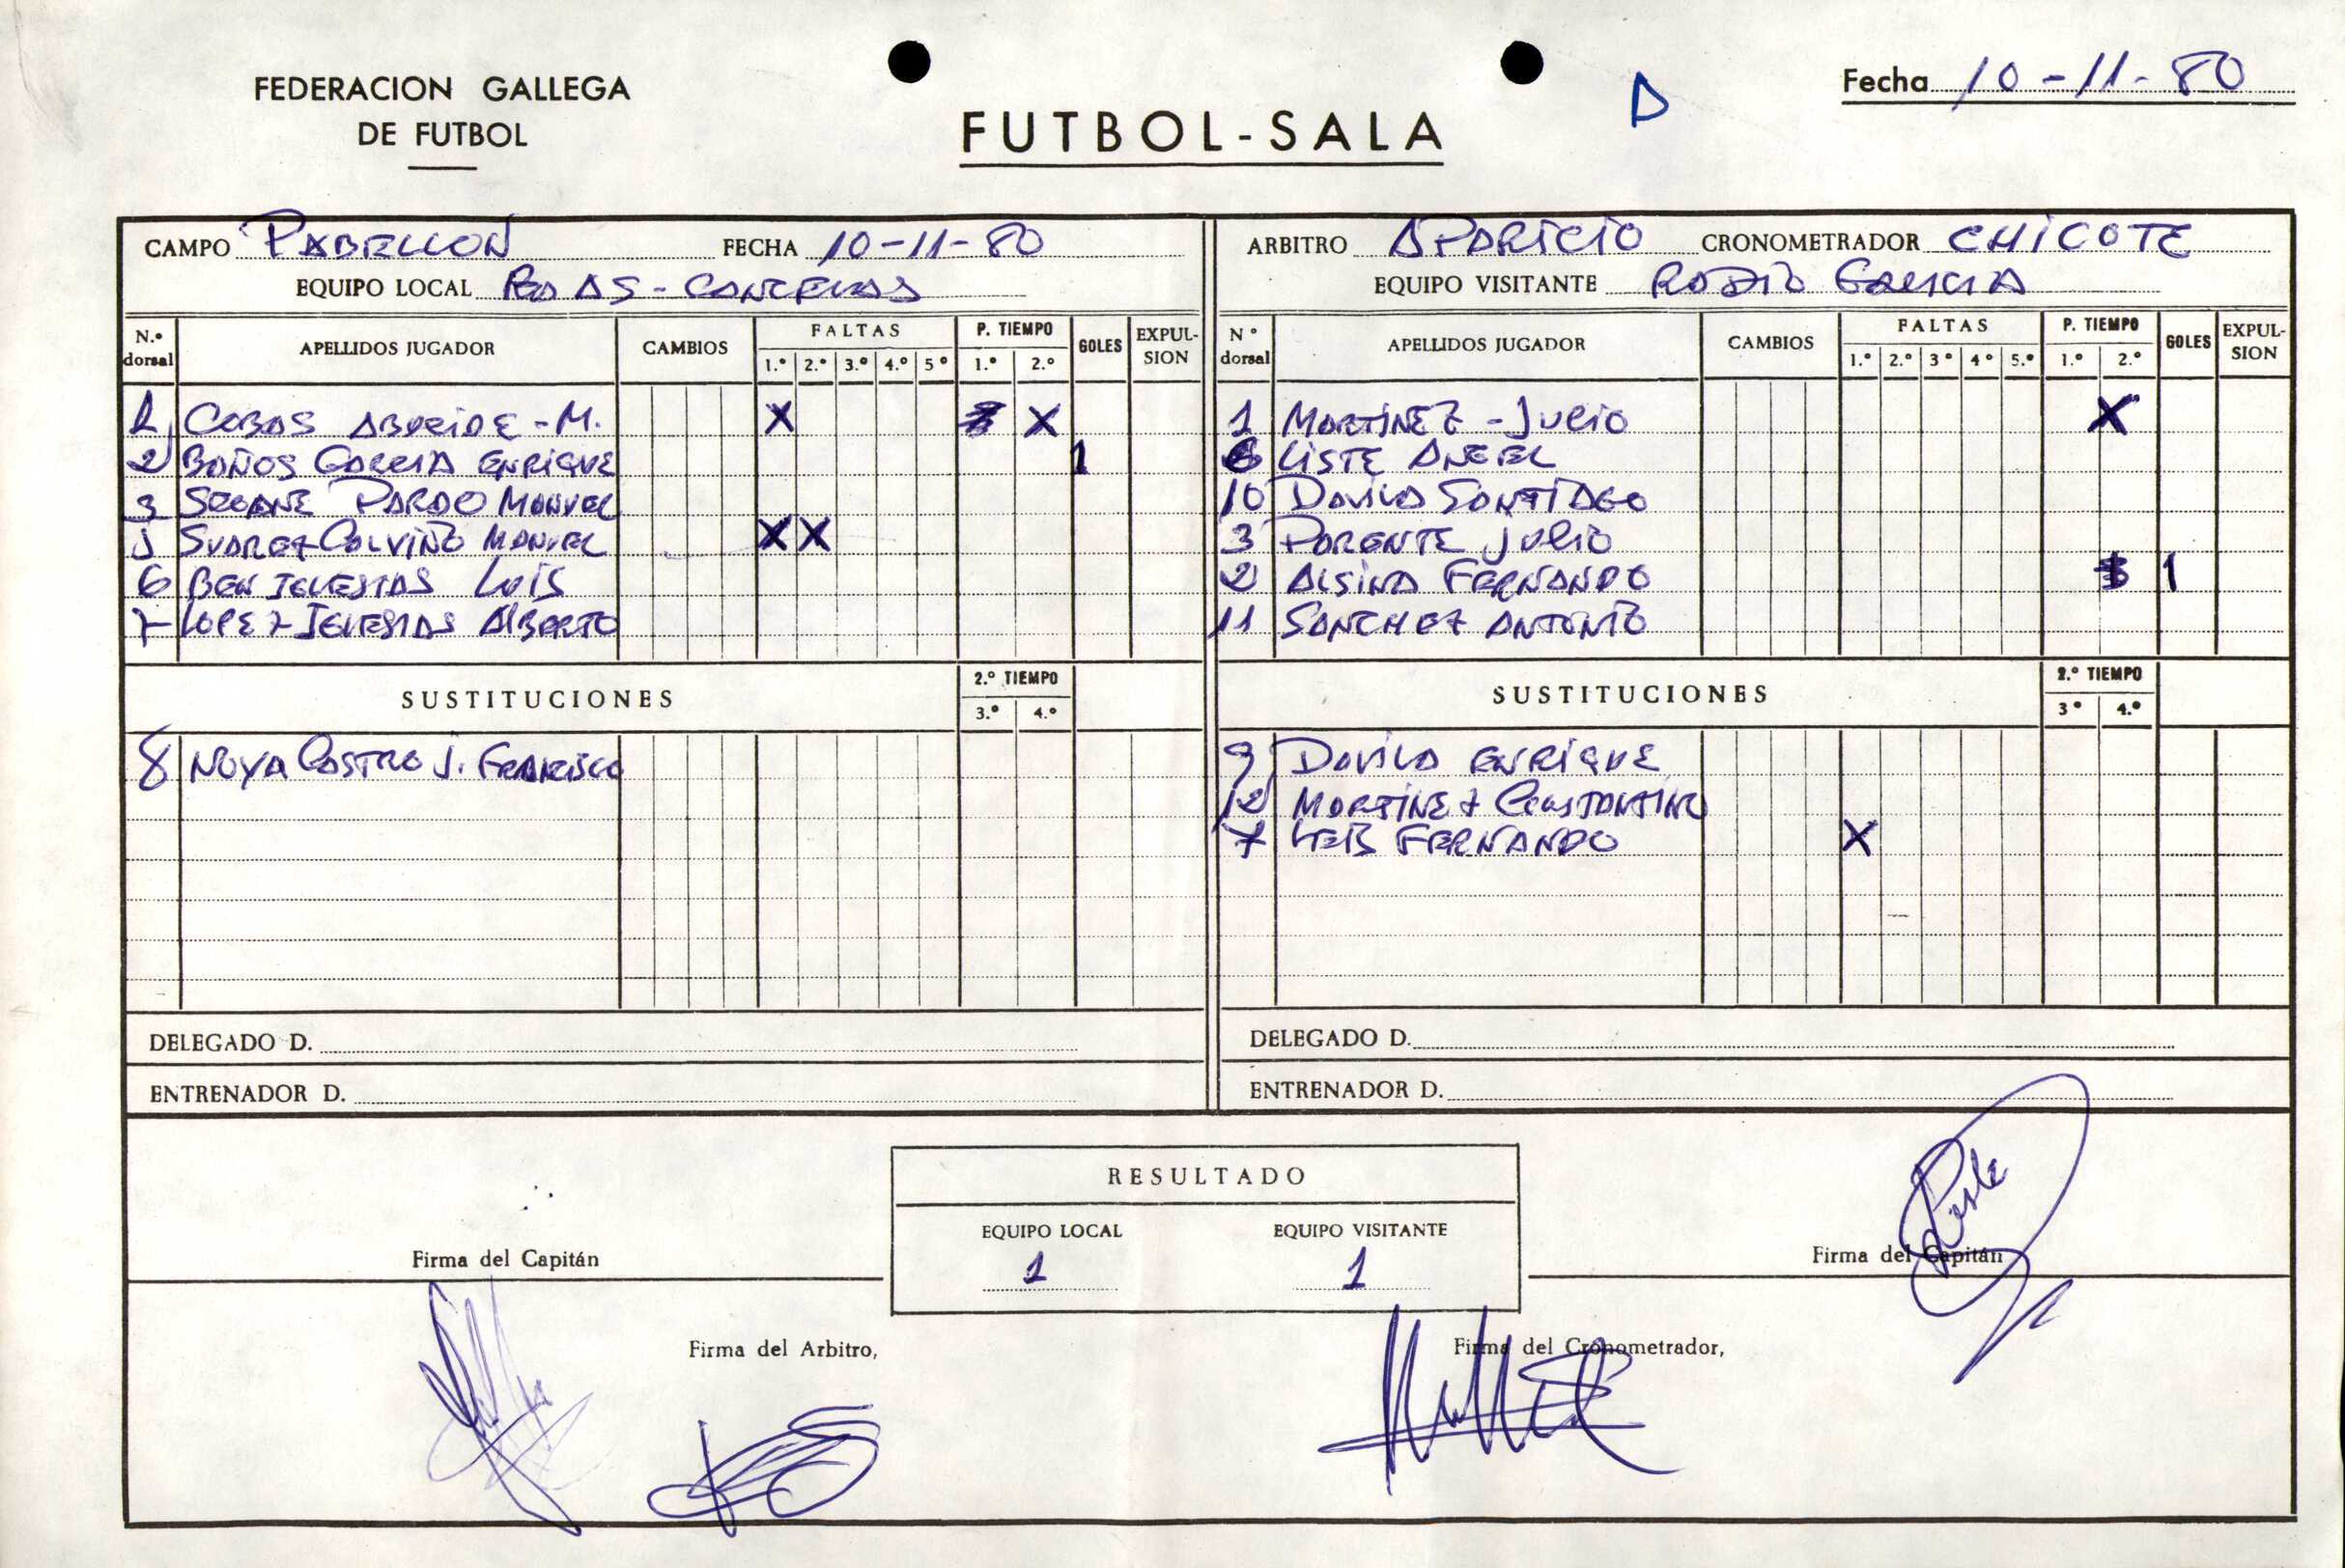 FEDERACION GALLEGA
DE FUTBOL
FUTBOL-SALA
D
Fecha 10-11-80
CAMPO PABELLON FECHA 10-11-80
EQUIPO LOCAL
ARBITRO APARICIO CRONOMETRADOR CHICOTE
EQUIPO VISITANTE RADIO GALICIA
N.º dorsal APELLIDOS JUGADOR CAMBIOS FALTAS 1.º 2.º 3.º 4.º 5º P. TIEMPO 1.º 2.º GOLES EXPULSION
1 COBAS M. X X
2 BAÑOS GARCIA ENRIQUE 1
3 SEOANE PARDO MANUEL
SUAREZ COLVIÑO MANUEL X X
6 BEN IGLESIAS LUIS
7 LOPEZ IGLESIAS ALBERTO
SUSTITUCIONES 2.º TIEMPO 3.º 4.º
8 NOYA CASTRO J. FRANCISCO
DELEGADO D.
ENTRENADOR D.
Nº dorsal APELLIDOS JUGADOR CAMBIOS FALTAS 1.º 2.º 3º 4º 5.º P. TIEMPO 1.º 2.º GOLES EXPULSION
1 MARTINEZ - JULIO X
6 LISTE ANGEL
10 DAVILA SANTIAGO
3 PARENTE JULIO
2 ALSINA FERNANDO 1
11 SANCHEZ ANTONIO
SUSTITUCIONES 2.º TIEMPO 3º 4.º
9 DAVILA ENRIQUE
12 MARTINEZ CONSTANTINO
7 LEIS FERNANDO X
DELEGADO D.
ENTRENADOR D.
RESULTADO
EQUIPO LOCAL EQUIPO VISITANTE
1 1
Firma del Capitán
Firma del Capitán
Liste
Firma del Arbitro,
Firma del Cronometrador,